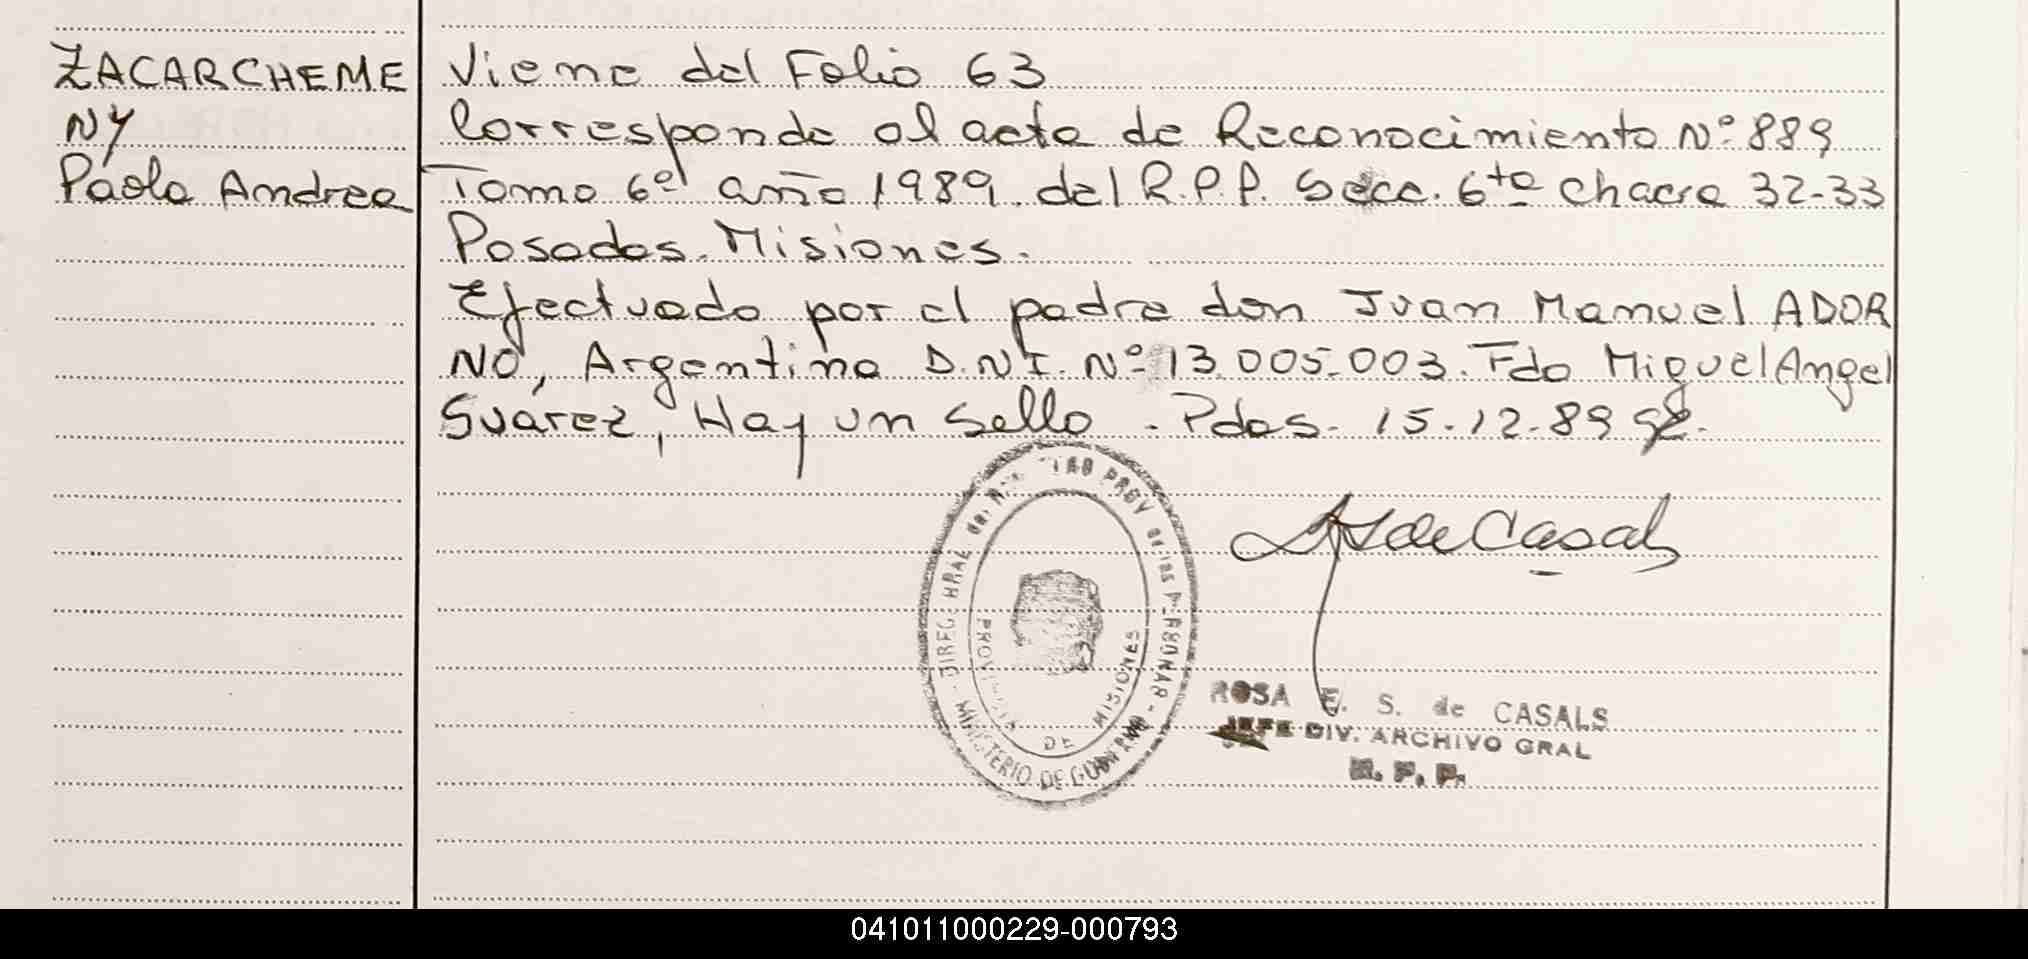 ZACARCHEME
NY
Paola Andrea
Viene del Folio 63
Corresponde al acta de Reconocimiento Nº 889
Tomo 6º año 1989. del R.P.P. Secc. 6ta Chacra 32-33
Posadas. Misiones.
Efectuado por el padre don Juan Manuel ADOR
NO, Argentino D.N.I. Nº 13.005.003. Fdo Miguel Angel
Suárez, Hay un Sello. Pdas. 15.12.89
de Casals
PROV de las PERSONAS - MINISTERIO DE GOBIERNO -
PROVINCIA DE MISIONES
ROSA E. S. de CASALS
JEFE DIV. ARCHIVO GRAL
R. P. P.
041011000229-000793